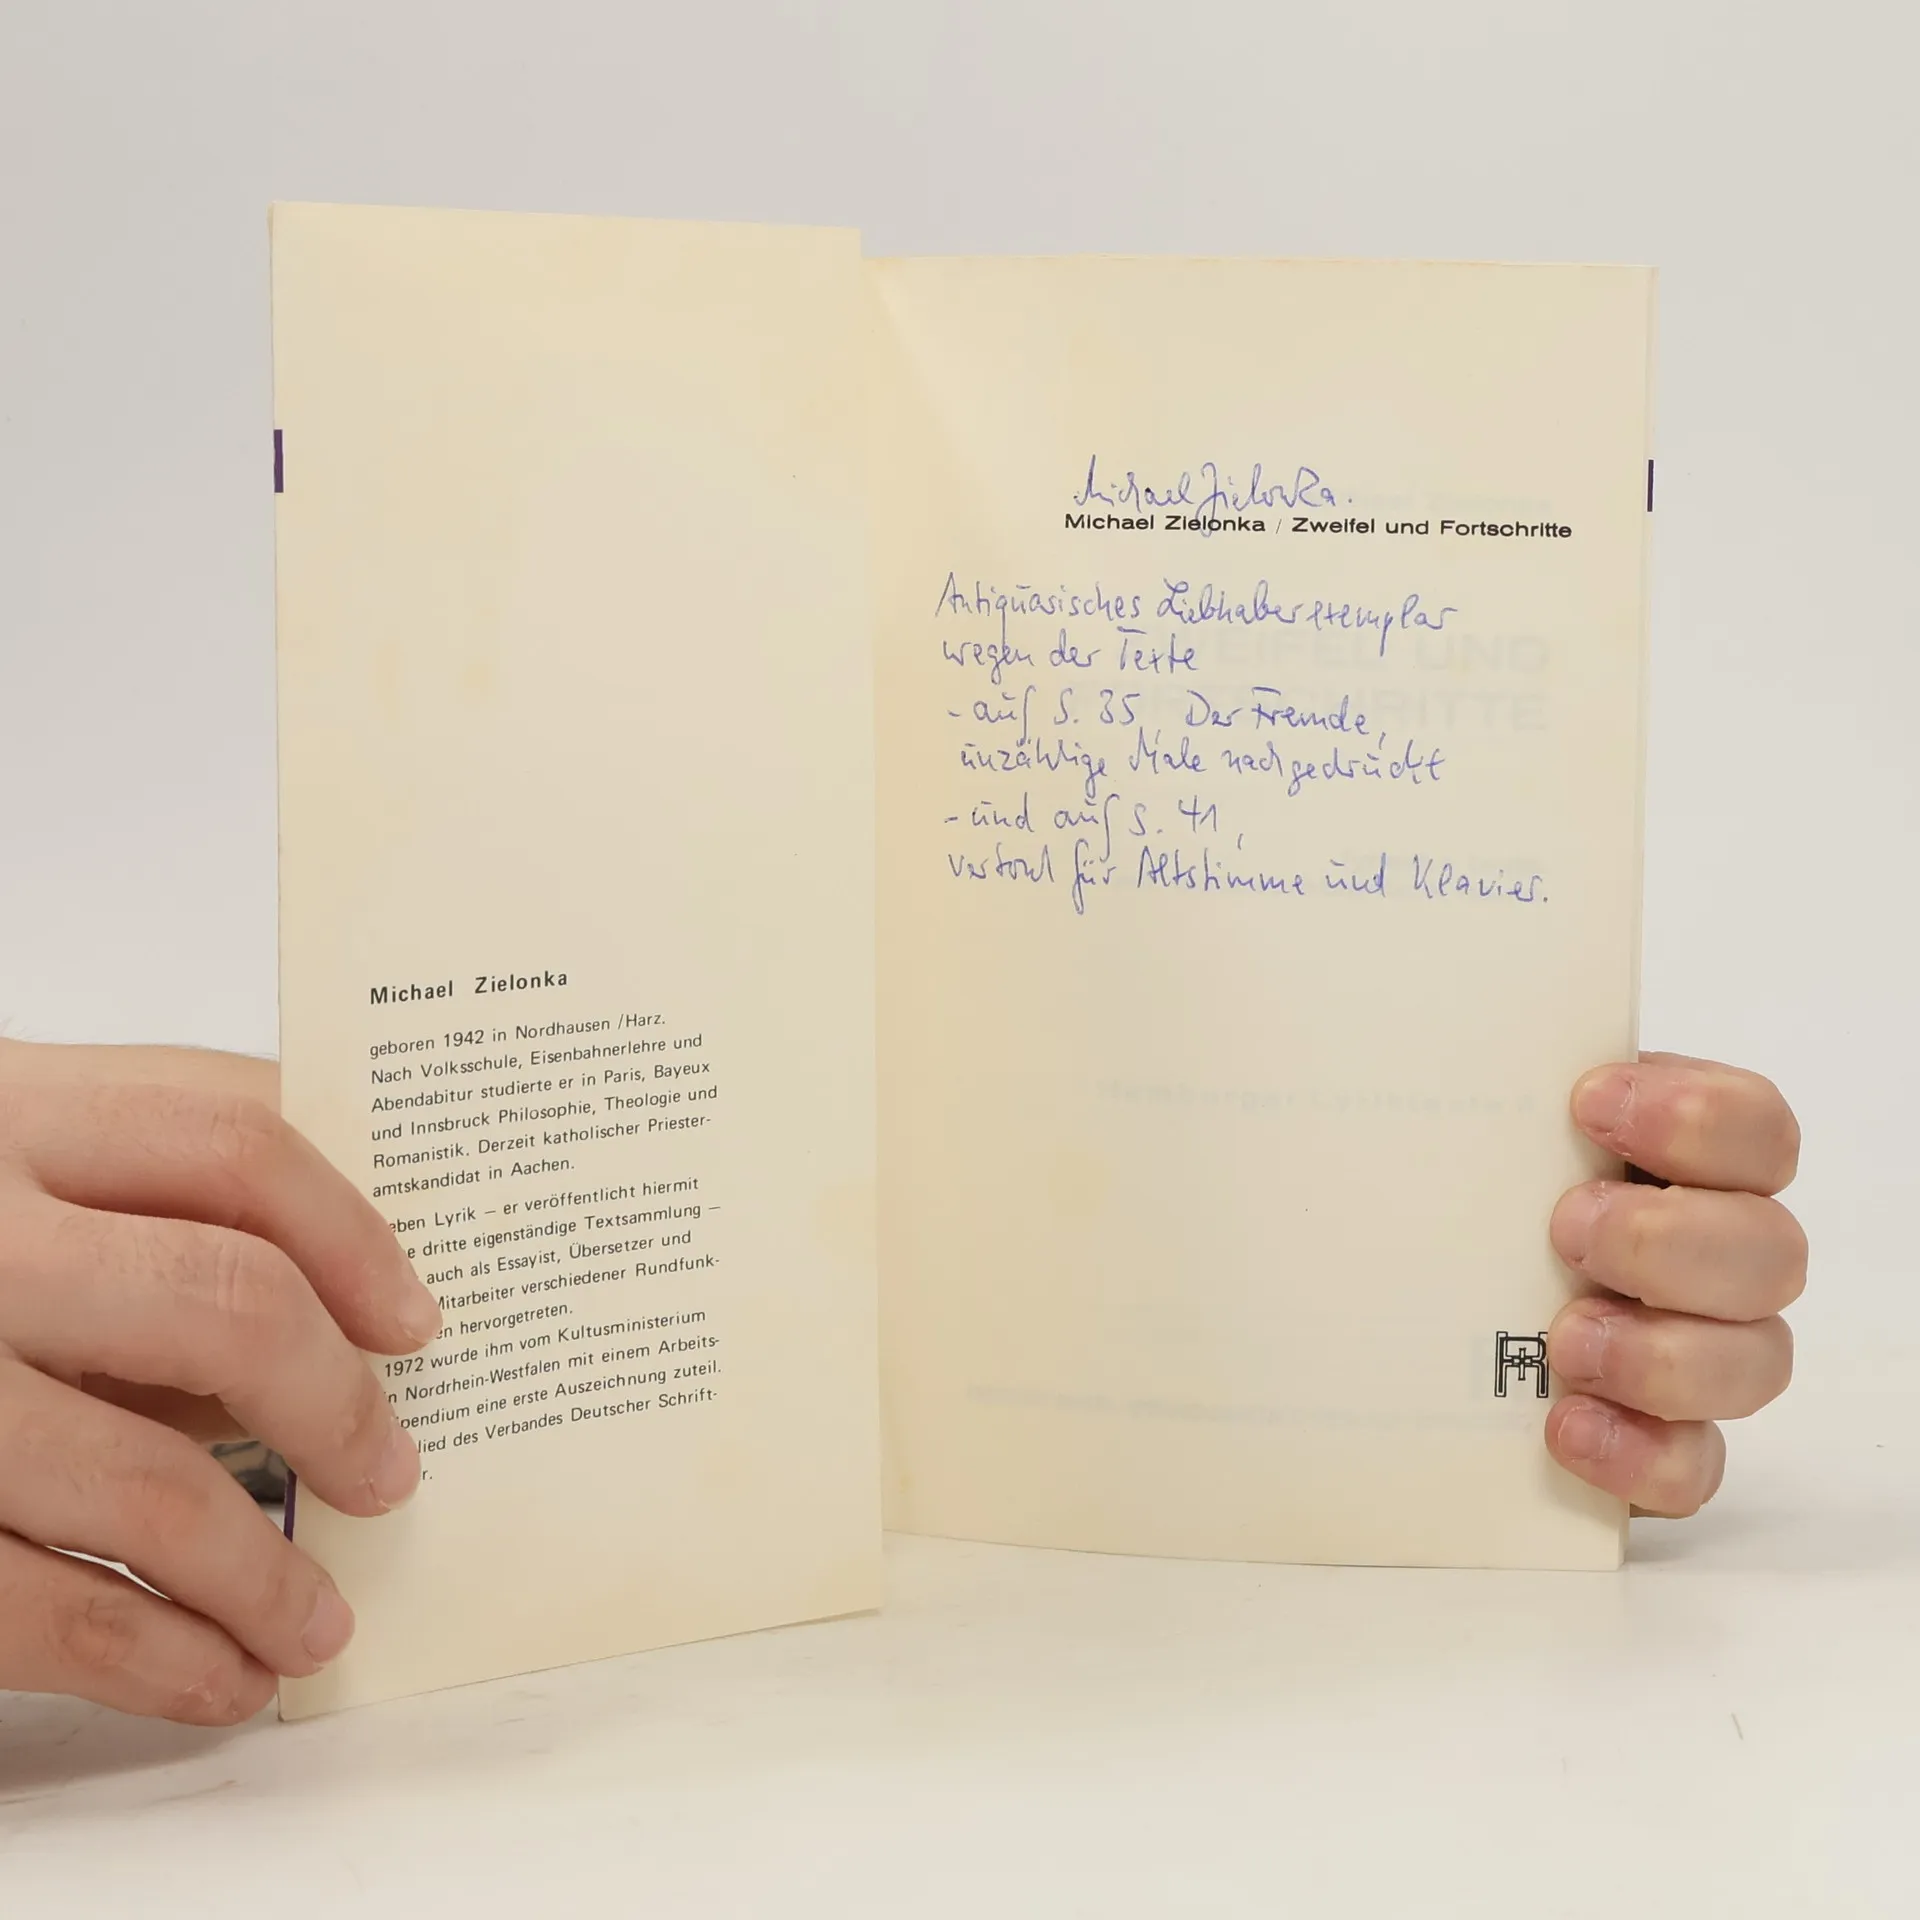 Michael Zielonka
geboren 1942 in Nordhausen /Harz.
Nach Volksschule, Eisenbahnerlehre und
Abendabitur studierte er in Paris, Bayeux
und Innsbruck Philosophie, Theologie und
Romanistik. Derzeit katholischer Priester-
amtskandidat in Aachen.
eben Lyrik – er veröffentlicht hiermit
e dritte eigenständige Textsammlung –
auch als Essayist, Übersetzer und
Mitarbeiter verschiedener Rundfunk-
en hervorgetreten.
1972 wurde ihm vom Kultusministerium
in Nordrhein-Westfalen mit einem Arbeits-
ipendium eine erste Auszeichnung zuteil.
lied des Verbandes Deutscher Schrift-
r.
Michael Zielonka.
Michael Zielonka / Zweifel und Fortschritte
Antiquarisches Liebhaberexemplar
wegen der Texte
- auf S. 35, Der Fremde,
unzählige Male nachgedruckt
- und auf S. 41,
vertont für Altstimme und Klavier.
ZWEIFEL UND
FORTSCHRITTE